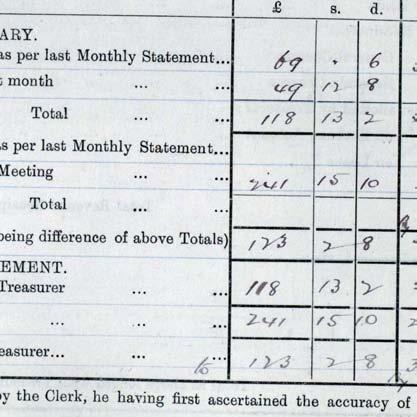 £ s. d.
ARY.
as per last Monthly Statement... 69 . 6
t month ... ... 49 12 8
Total ... ... 118 13 2
as per last Monthly Statement...
Meeting ... ... 241 15 10
Total ... ...
being difference of above Totals) 123 2 8
EMENT.
Treasurer ... ... 118 13 2
... ... 241 15 10
easurer... to ... 123 2 8
by the Clerk, he having first ascertained the accuracy of